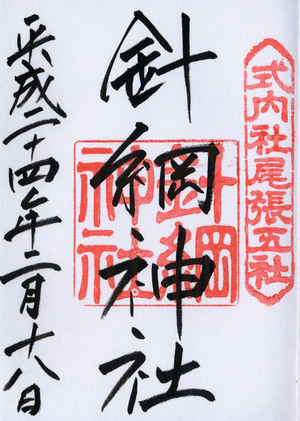 式内社尾張五社
針綱神社
針綱神社
平成二十四年二月十八日